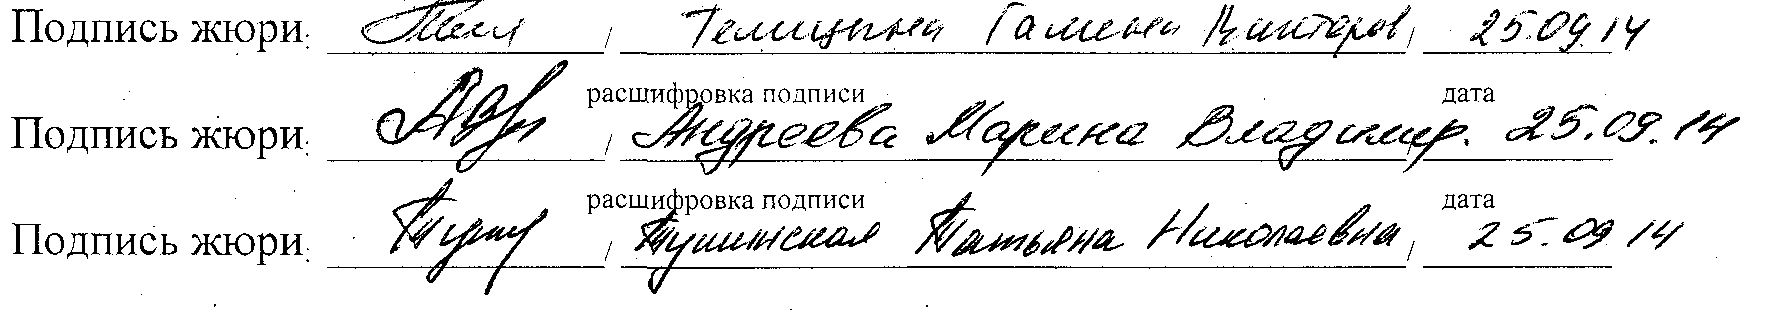 Подпись жюри: / Викторов / 25.09.14
расшифровка подписи дата
Подпись жюри: / Андреева Марина Владимир. 25.09.14
расшифровка подписи дата
Подпись жюри: / Татьяна Николаевна / 25.09.14